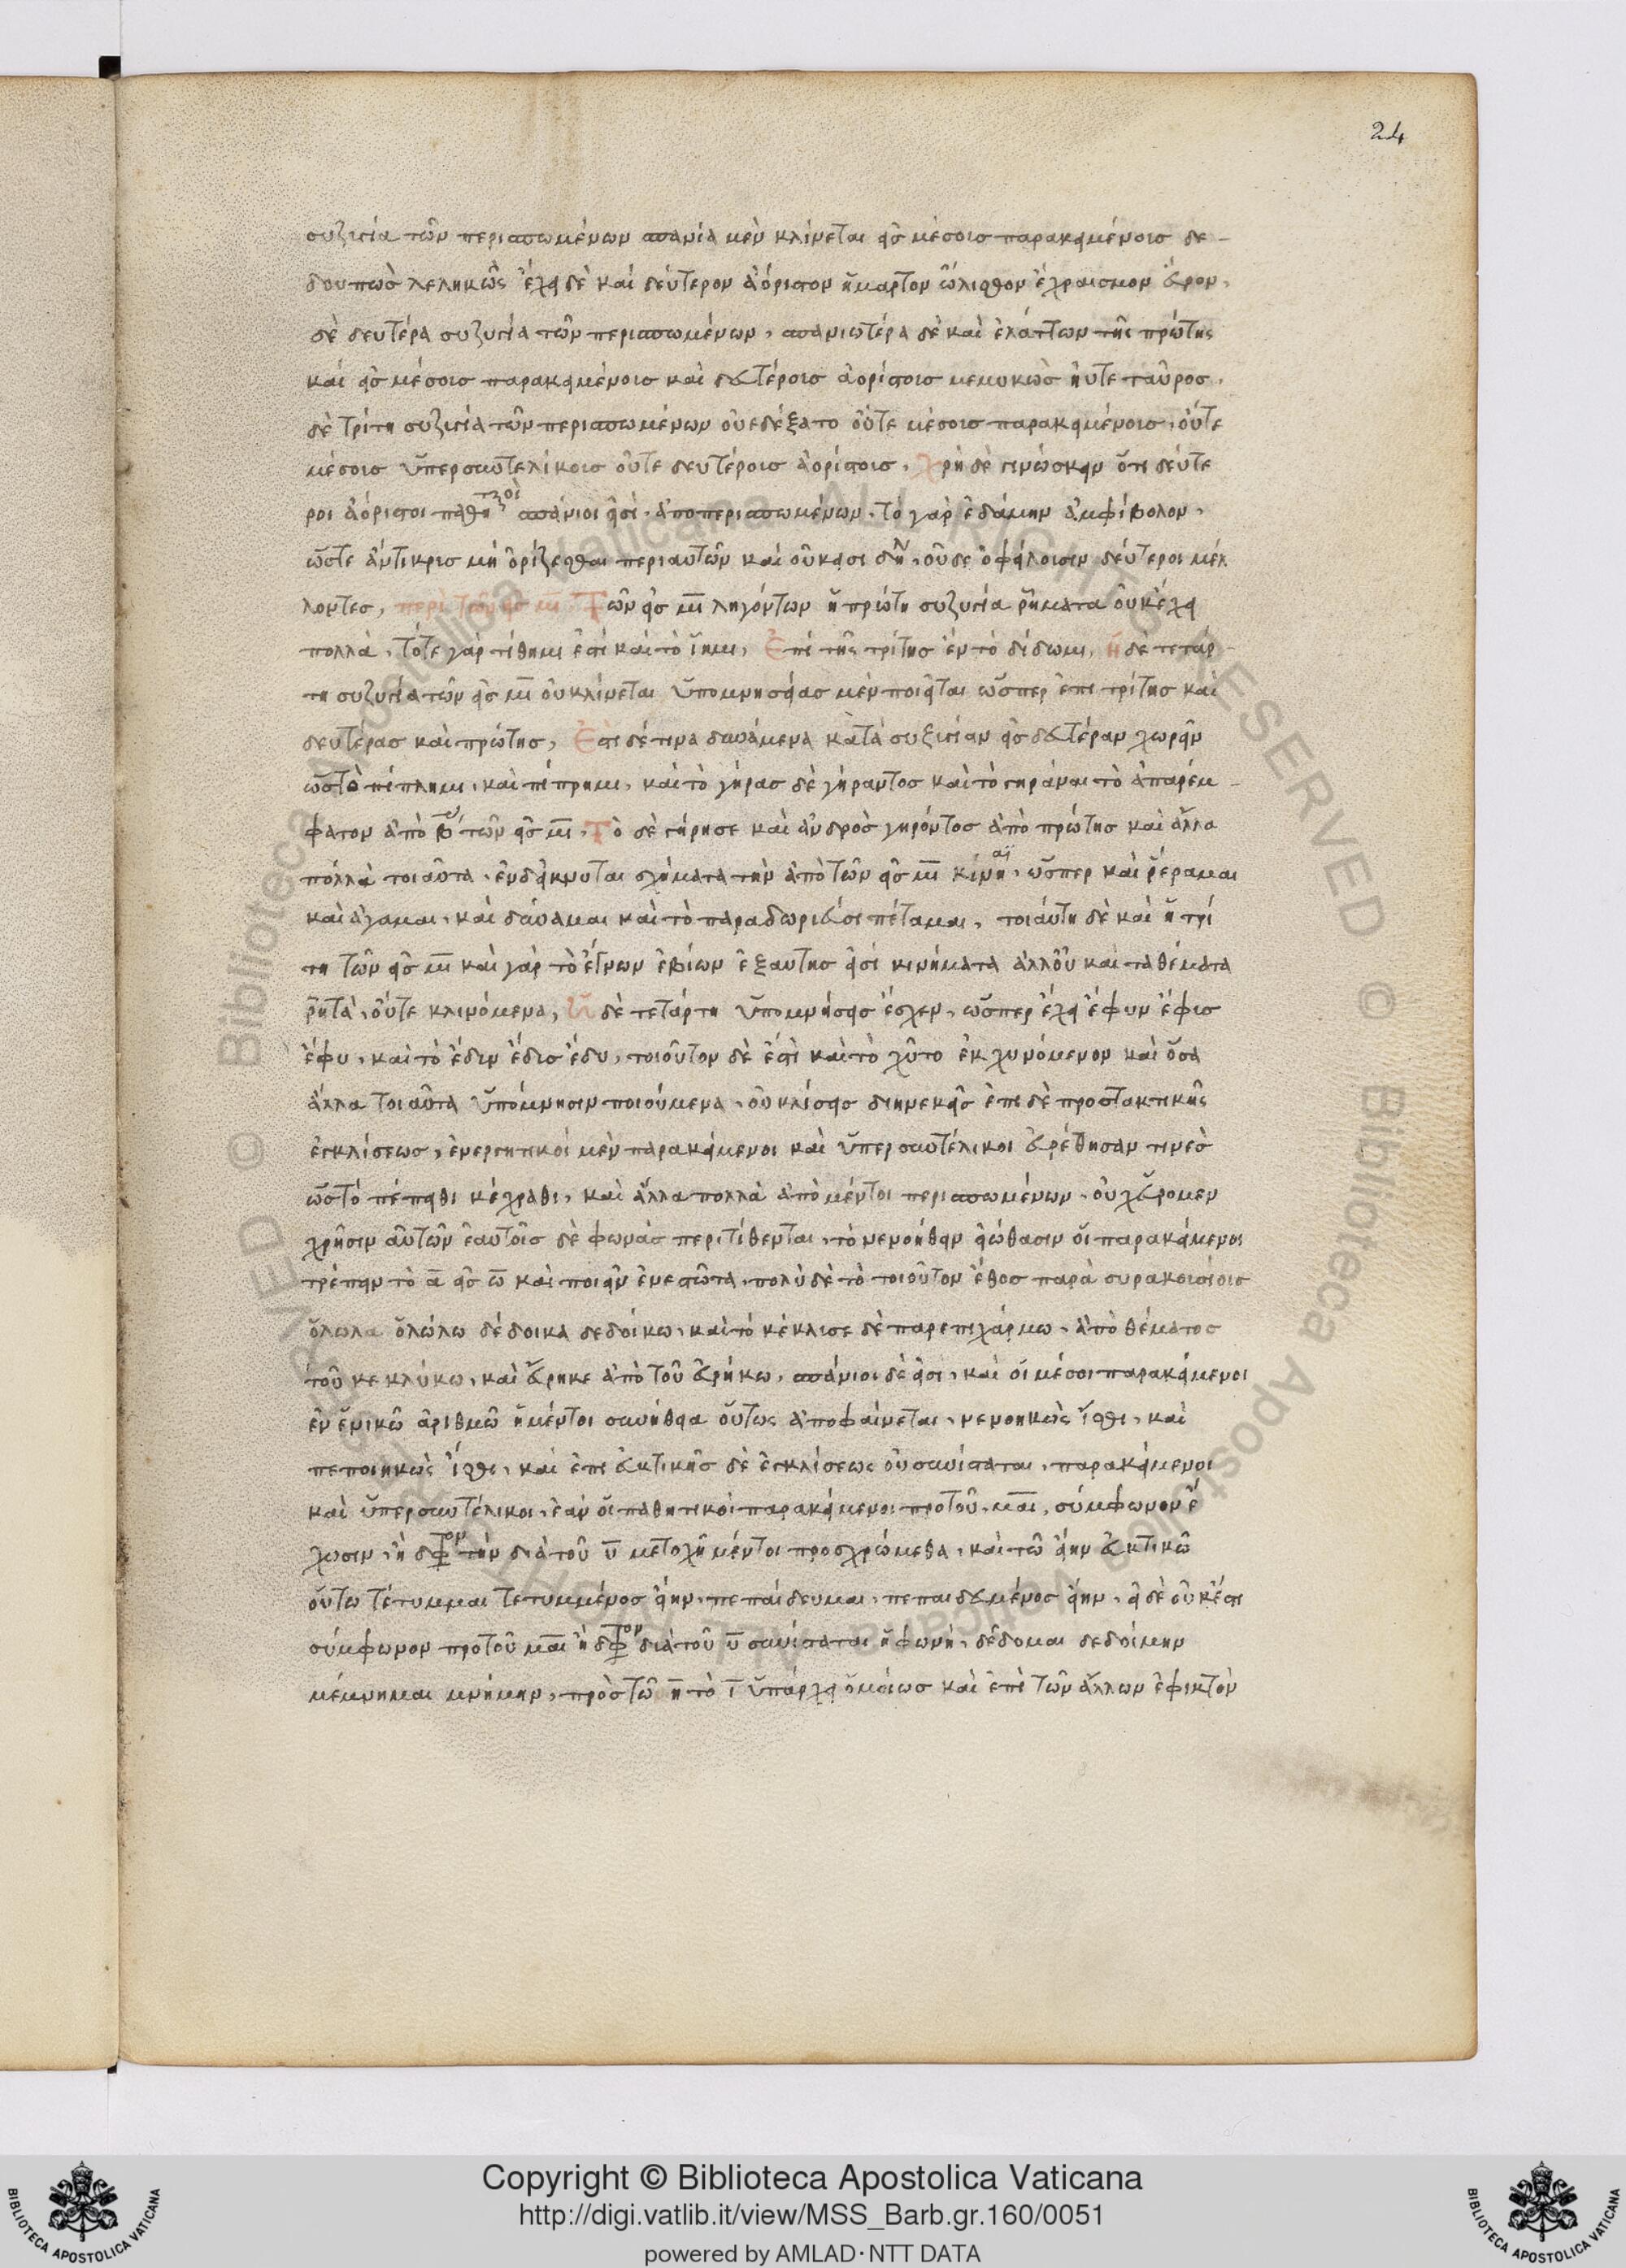 24
συζυγία τῶν περισπωμένων σπανία μὲν κλίνεται εἰς μέσοις παρακειμένοις δε-
δουπὼς λεληκὼς ἔχει δὲ καὶ δεύτερον ἀόριστον ἥμαρτον ὤλισθον ἔχραισμον εὗρον,
δὲ δευτέρα συζυγία τῶν περισπωμένων, σπανιωτέρα δὲ καὶ ἐλάττων τῆς πρώτης
καὶ εἰς μέσοις παρακειμένοις καὶ δευτέροις ἀορίστοις μεμυκὼς ἠύτε ταῦρος,
δὲ τρίτη συζυγία τῶν περισπωμένων οὐεδέξατο οὔτε μέσοις παρακειμένοις, οὔτε
μέσοις ὑπερσυντελίκοις οὔτε δευτέροις ἀορίστοις, χρὴ δὲ γινώσκειν ὅτι δεύτε
ροι ἀόριστοι παθητικοὶ σπάνιοι εἰσὶ ἀποπερισπωμένων, τὸ γὰρ ἐδάμην ἀμφίβολον,
ὥστε ἄντικρις μὴ ὁρίζεσθαι περιαυτῶν καὶ οὔκασι οὐδε ὀφείλοισιν δεύτεροι μέλ
λοντες, περὶ τῶν εἰς μι Τῶν εἰς μι ληγόντων ἡ πρώτη συζυγία ῥήματα οὐκέχει
πολλὰ, τότε γὰρ τίθημι ἐστὶ καὶ τὸ ἵημι, Ἐπὶ τῆς τρίτης ἐν τὸ δίδωμι, ἡ δὲ τετάρ-
τη συζυγία τῶν εἰς μι οὐκλίνεται ὑπομνησείας μὲν ποιεῖται ὥσπερ ἐπι τρίτης καὶ
δευτέρας καὶ πρώτης, Ἐστι δέ τινα δυνάμενα κατὰ συξιγίαν εἰς δευτέραν χωρεῖν
ὡς τὸ πίπλημι, καὶ πίπρημι, καὶ τὸ γήρας δὲ γήραντος καὶ τὸ γηράναι τὸ ἀπαρέμ-
φατον ἀπὸ β τῶν εἰς μι, Τὸ δὲ γήρησε καὶ ἀνδρὸς γηρόντος ἀπὸ πρώτης καὶ ἄλλα
πόλλὰ τοιαῦτα, ἐνδείκνυται σχήματα τὴν ἀπὸ τῶν εἰς μι ὥσπερ καὶ ῥέραμαι
καὶ ἄγαμαι, καὶ δύναμαι καὶ τὸ παραδωριεύσι πέταμαι, τοιάυτη δὲ καὶ ἡ τρί
τη τῶν εἰς μι καὶ γὰρ τὸ ἔγνων ἐβίων ἐξαυτῆς εἰσὶ κινήματα ἀλλοῦ καὶ τα θέματα
ῥητὰ, οὔτε κλινόμενα, Ἡ δὲ τετάρτη ὑπομνήσεις ἔσχεν, ὥσπερ ἔχει ἔφυν ἔφις
ἔφυ, καὶ τὸ ἔδιν ἔδις ἔδυ, τοιοῦτον δὲ ἐστὶ καὶ τὸ χῦτο ἐκ χυνόμενον καὶ ὅσα
ἄλλα τοιαῦτα ὑπόμνησιν ποιούμενα, οὐ κλίσεις διηνεκεῖς ἐπι δὲ προστακτικῆς
ἐγκλίσεως, ἐνεργητικοὶ μὲν παρακείμενοι καὶ ὑπερσυντέλικοι εὑρέθησαν τινὲς
ὡς τὸ πέπειθι κέχραθι, καὶ ἄλλα πολλὰ ἀπὸ μέντοι περισπωμένων, οὐχεύρομεν
χρῆσιν αὐτῶν ἑαυτοῖς δὲ φωνὰς περιτίθενται, τὸ νενοήθειν εἰώθασιν οἱ παρακείμενοι
τρέπειν τὸ α εἰς ω καὶ ποιεῖν ἐνεστῶτα, πολὺ δὲ τὸ τοιοῦτον ἔθος παρὰ συρακοισίοις
ὄλωλα ὀλώλω δέδοικα δεδοίκω, καὶ τὸ κέκλισε δὲ παρεπιχάρμω, ἀπὸ θέματος
τοῦ κεκλύκω, καὶ εὕρηκε ἀπὸ τοῦ εὑρήκω, σπάνιοι δὲ εἰσι, καὶ οἱ μέσοι παρακείμενοι
ἐν ἑνικῶ ἀριθμῶ ἡμέντοι συνήθεια οὕτως ἀποφαίνεται, νενοηκὼς ἴσθι, καὶ
πεποιηκὼς ἴσθι, καὶ ἐπι εὐκτικῆς δὲ ἐγκλίσεως οὐσυνίσταται, παρακείμενοι
καὶ ὑπερσυντέλικοι, ἐὰν οἱ παθητικοὶ παρακείμενοι προτοῦ, μαι, σύμφωνον ἔ
χωσιν, ἢ τὴν διὰ τοῦ υ μετοχῆ μέντοι προσχρώμεθα, καὶ τῶ εἴην εὐκτικῶ
οὕτω τέτυμμαι τετυμμένος εἴην, πεπαίδευμαι, πεπαιδευμένος εἴην, εἰ δὲ οὐκέστι
σύμφωνον προτοῦ μαι ἢ διὰ τοῦ υ συνίσταται ἡ φωνὴ, δέδομαι δεδοίμην
μέμνημαι μνήμην, πρὸς τῶ η τὸ ι ὑπάρχει ὁμοίως καὶ ἐπὶ τῶν ἄλλων ἐφικτὸν
Copyright © Biblioteca Apostolica Vaticana
http://digi.vatlib.it/view/MSS_Barb.gr.160/0051
powered by AMLAD·NTT DATA